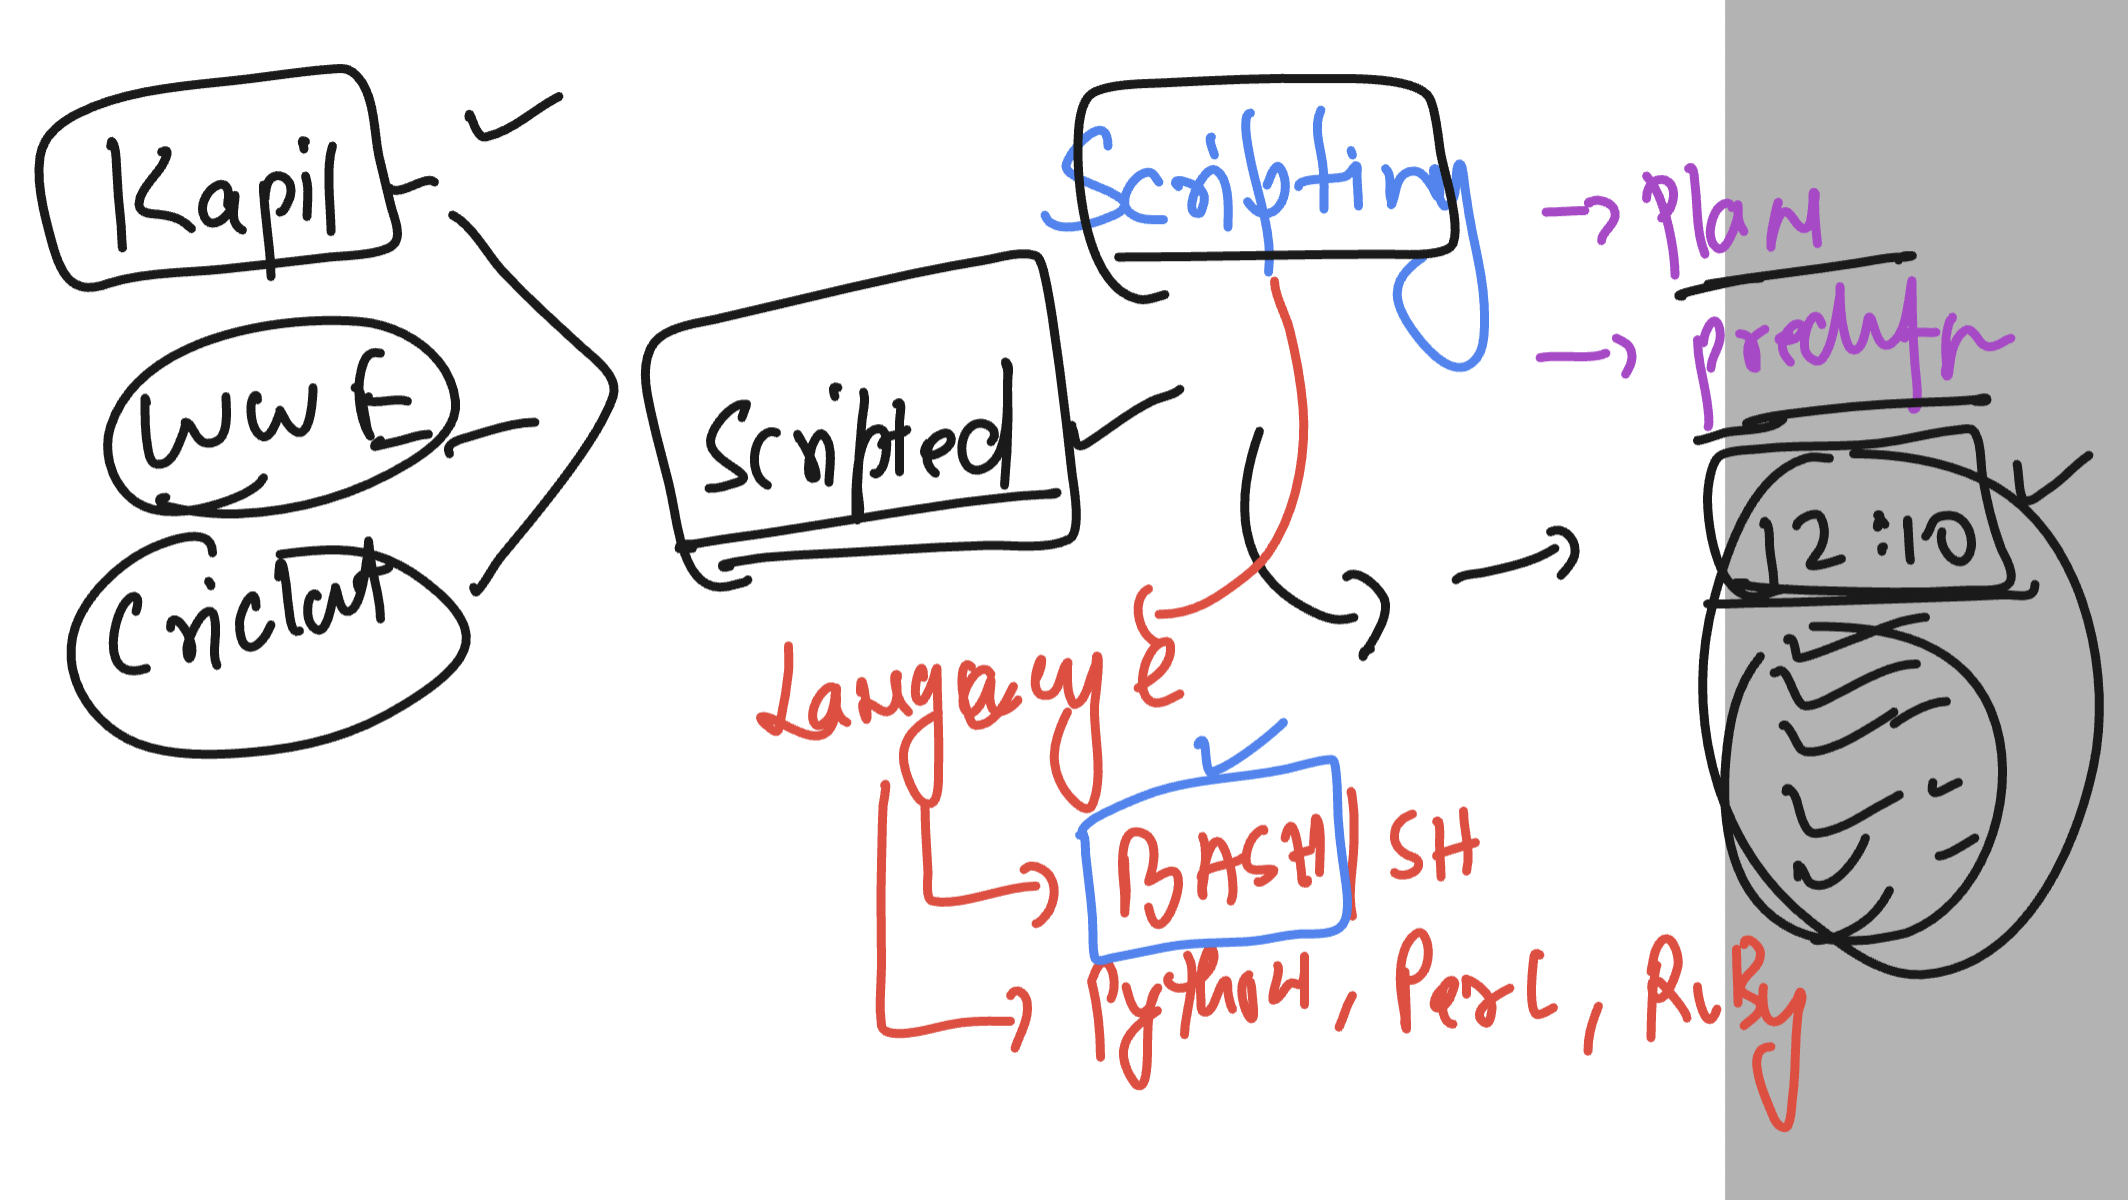 Kapil
WWE
Scripted
Scripting
plan
12:10
Language
BASH | SH
Python, Perl, RuBy